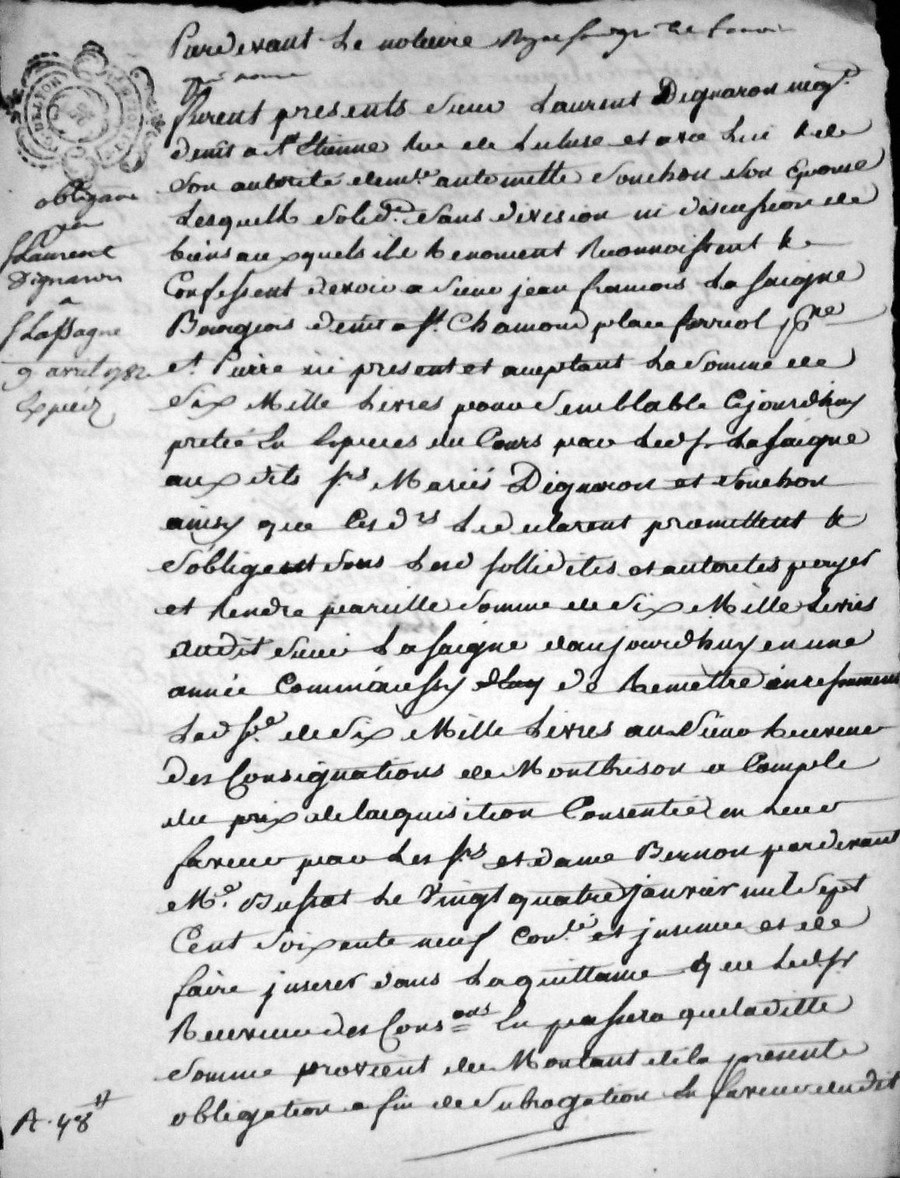 Pardevant Le notaire Royal
furent presents sieur Laurent Dignaron neg.t
demt a St Etienne Rue de et avec Lui & de
Son autorité demlle antoinette Souchon Son Epouse
Lesquels solid.t sans division ni discussion de
biens auxquels ils Renoncent Reconnoissent &
Confessent devoir a sieur jean francois La saigne
Bourgeois demt a St. Chamond place ferriol psse
St Pierre ici present et acceptant La Somme de
Six Mille Livres pour Semblable Cejourdhuy
pretée En Especes du Cours par Ledt Sr Lasaigne
aux dits Srs Mariés Dignaron et Souchon
ainsy que Ces d.rs Le declarent promettent &
S'obligent sous Lesd sollidités et autorités payer
et Rendre pareille Somme de Six Mille Livres
audit Sieur Lasaigne daujourdhuy en une
année Comme aussy de Remettre
Lad Se de Six Mille Livres au Sieur Receveur
des Consignations de Montbrison a Compte
du prix de lacquisition Consentie en Leur
faveur par Les Srs et dame Bernon pardevant
Me. Bussat Le Vingt quatre janvier mil Sept
Cent Soixante neuf Conlé et jnsinué et de
faire jnserer dans La quittance que Ledt Sr
Receveur des Cons ons En passera que laditte
Somme provient du Montant de la presente
obligation a fin de Subrogation En faveur dudit
obligaon
Sr Laurent
Dignaron
a
Sr Lassagne
9 avril 1782
Expiéz
A. 48 tt